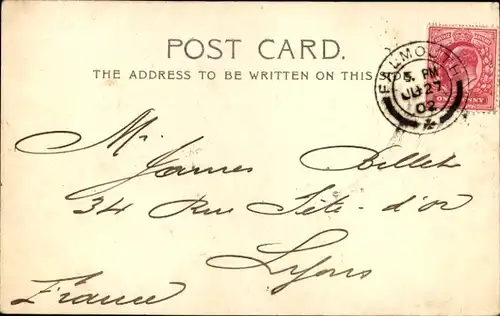 POST CARD.
THE ADDRESS TO BE WRITTEN ON THIS SIDE
FALMOUTH
5. PM
JU 27
02
ONE PENNY
Mr James Billet
34 Rue Tête-d'or
Lyons
France